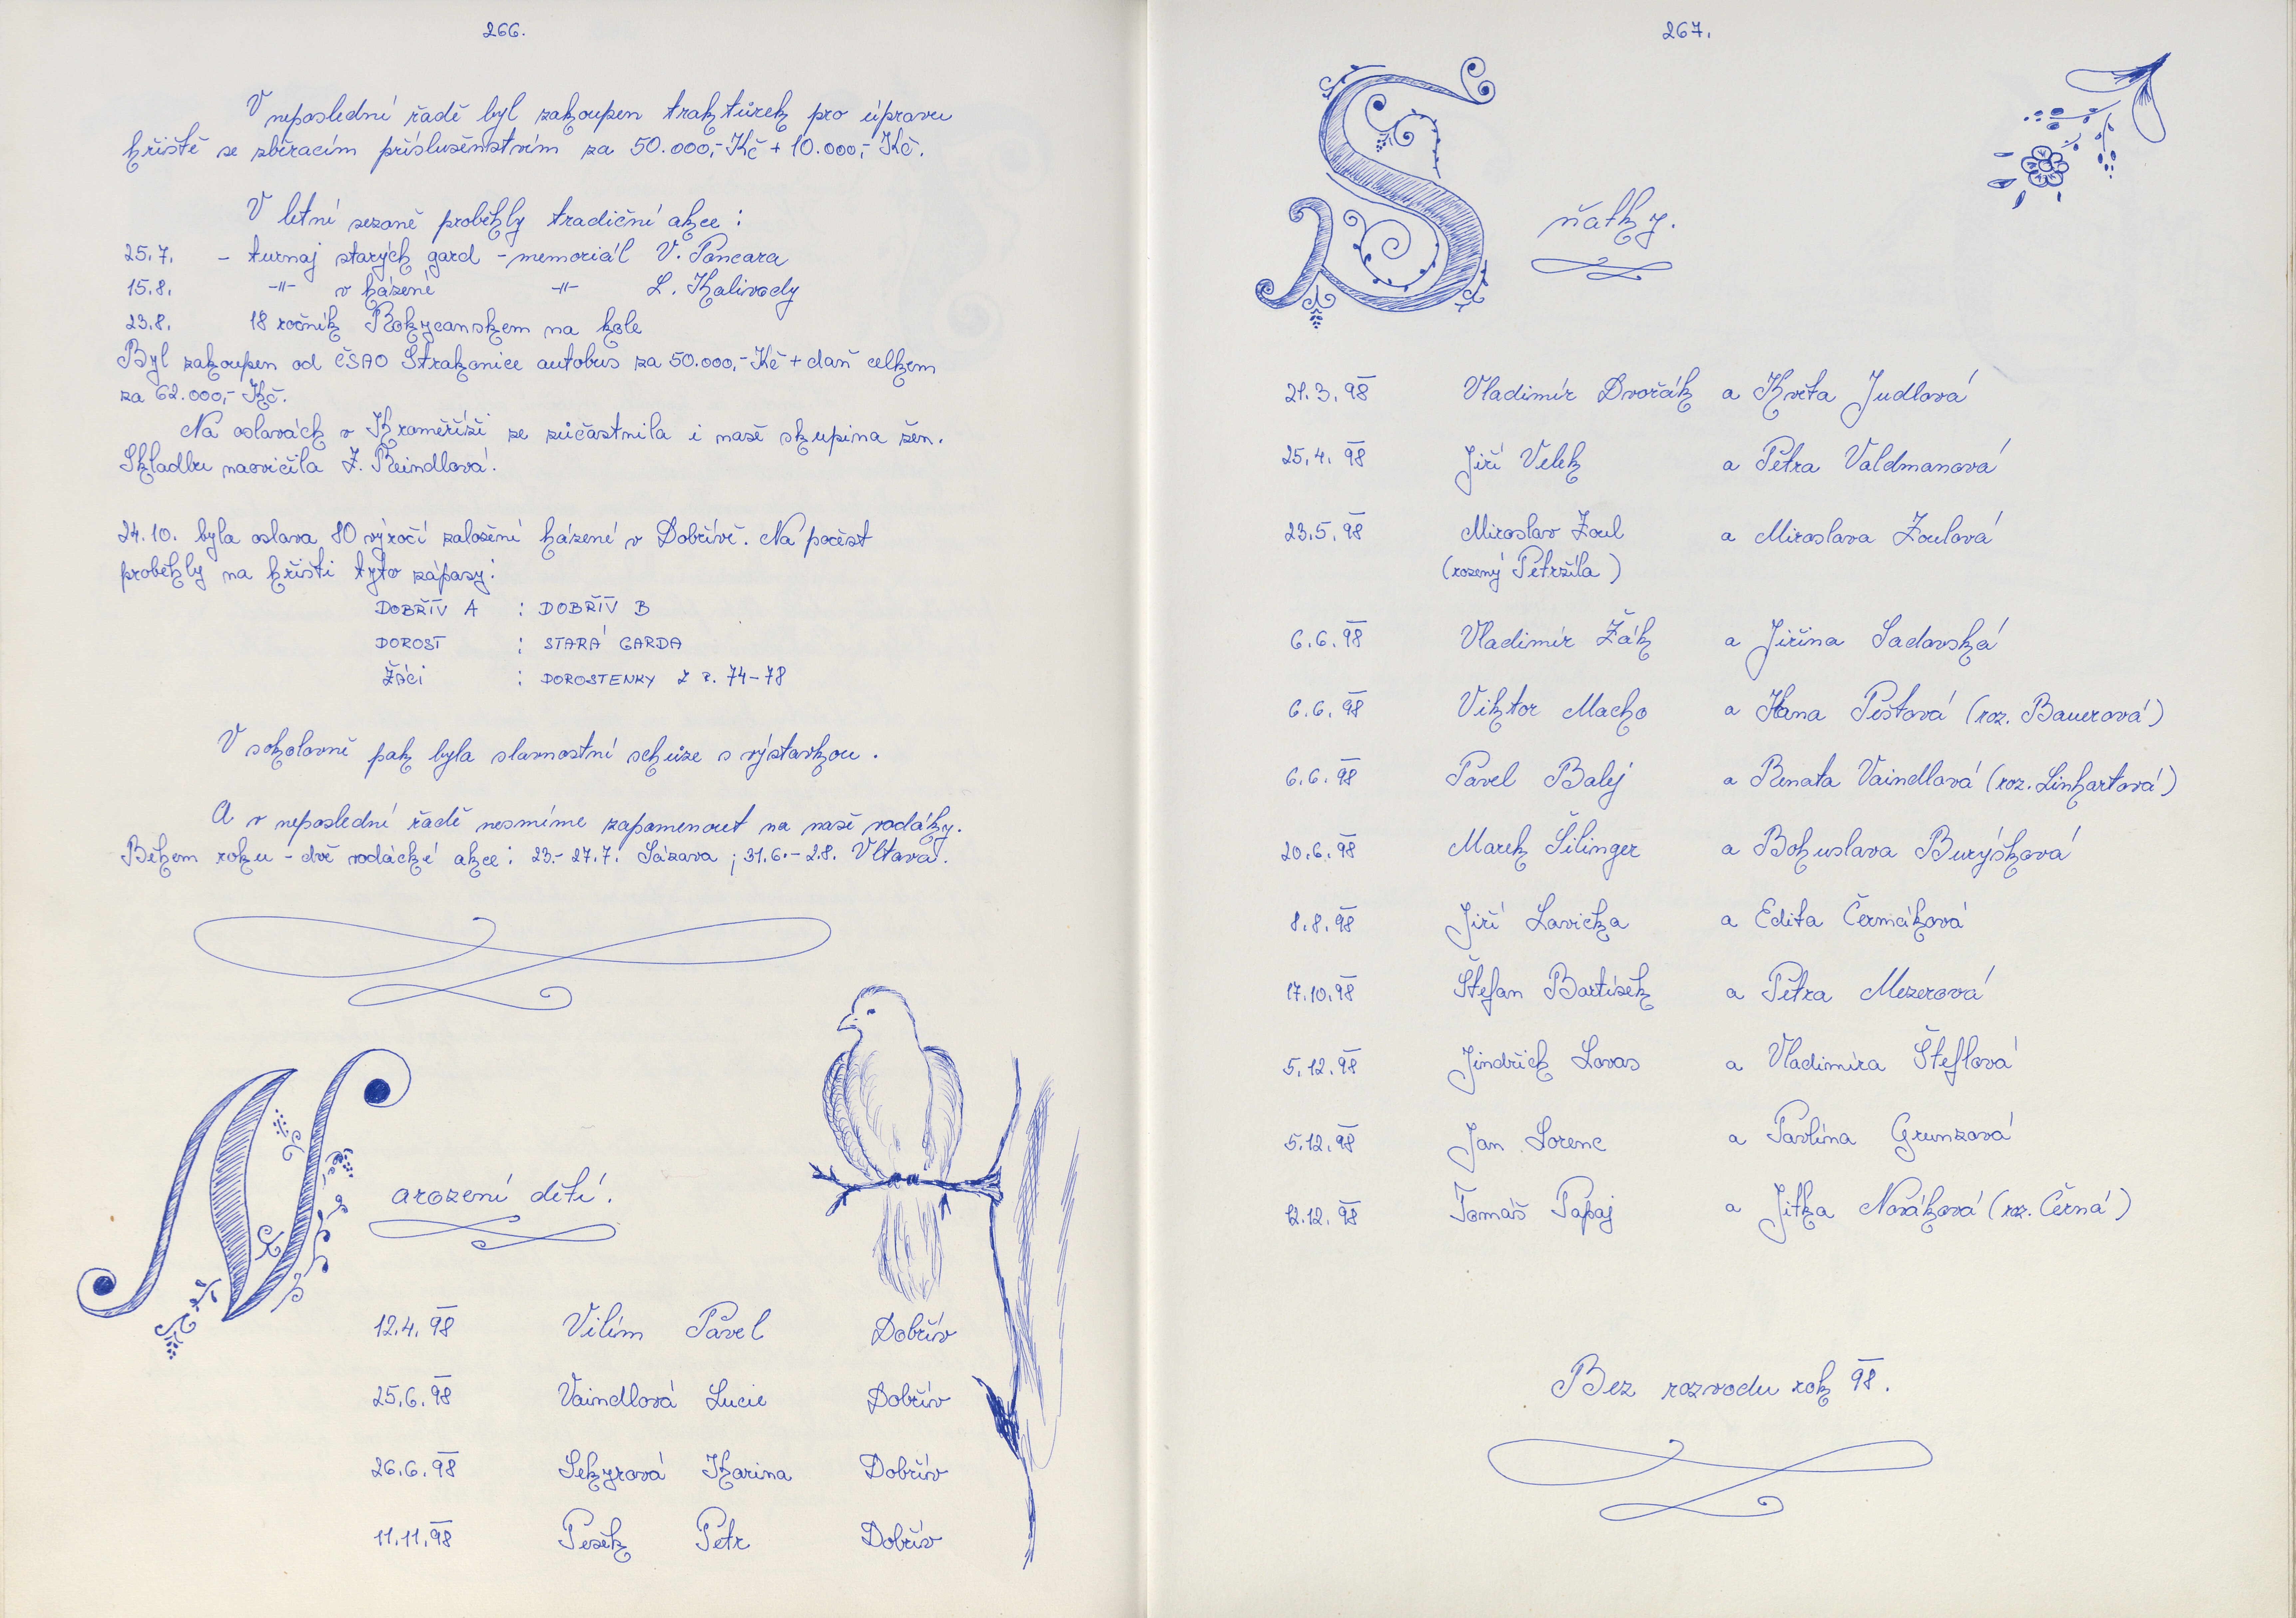 266.
V neposlední řadě byl zakoupen traktůrek pro úpravu
hřiště se sběracím příslušenstvím za 50.000,- Kč + 10.000,- Kč.
V letní sezoně proběhly tradiční akce :
25.7. - turnaj starých gard - memoriál V. Pancara
15.8. -"- v házené -"- L. Kalivody
23.8. 18 ročník Rokycanskem na kole
Byl zakoupen od ČSAO Strakonice autobus za 50.000,- Kč + daň celkem
za 62.000,- Kč.
Na oslavách v Kroměříži se zúčastnila i naše skupina žen.
Skladbu nacvičila Z. Reindlová.
24.10. byla oslava 80 výročí založení házené v Dobřívě. Na počest
proběhly na hřišti tyto zápasy:
DOBŘÍV A : DOBŘÍV B
DOROST : STARÁ GARDA
ŽÁCI : DOROSTENKY Z R. 74-78
V sokolovně pak byla slavnostní schůze s výstavkou.
A v neposlední řadě nesmíme zapomenout na naše vodáky.
Během roku - dvě vodácké akce : 23.- 27.7. Sázava ; 31.6.- 2.8. Vltava.
Narození dětí.
12.4. 98 Vilím Pavel Dobřív
25.6. 98 Vaindlová Lucie Dobřív
26.6. 98 Sekyrová Karina Dobřív
11.11. 98 Pešek Petr Dobřív
267.
Sňatky.
21.3. 98 Vladimír Dvořák a Květa Judlová
25.4. 98 Jiří Velek a Petra Valdmanová
23.5. 98 Miroslav Zoul a Miroslava Zoulová
(rozený Petržíla)
6.6. 98 Vladimír Žák a Jiřina Sadovská
6.6. 98 Viktor Macho a Hana Pešťová (roz. Bauerová)
6.6. 98 Pavel Balej a Renata Vaindlová (roz. Linhartová)
20.6. 98 Marek Šilinger a Bohuslava Burýšková
8.8. 98 Jiří Lavička a Edita Čermáková
17.10. 98 Štefan Bartíšek a Petra Mezerová
5.12. 98 Jindřich Lovas a Vladimíra Šteflová
5.12. 98 Jan Lorenc a Pavlína Grunzová
12.12. 98 Tomáš Papaj a Jitka Nováková (roz. Černá)
Bez rozvodu rok 98.